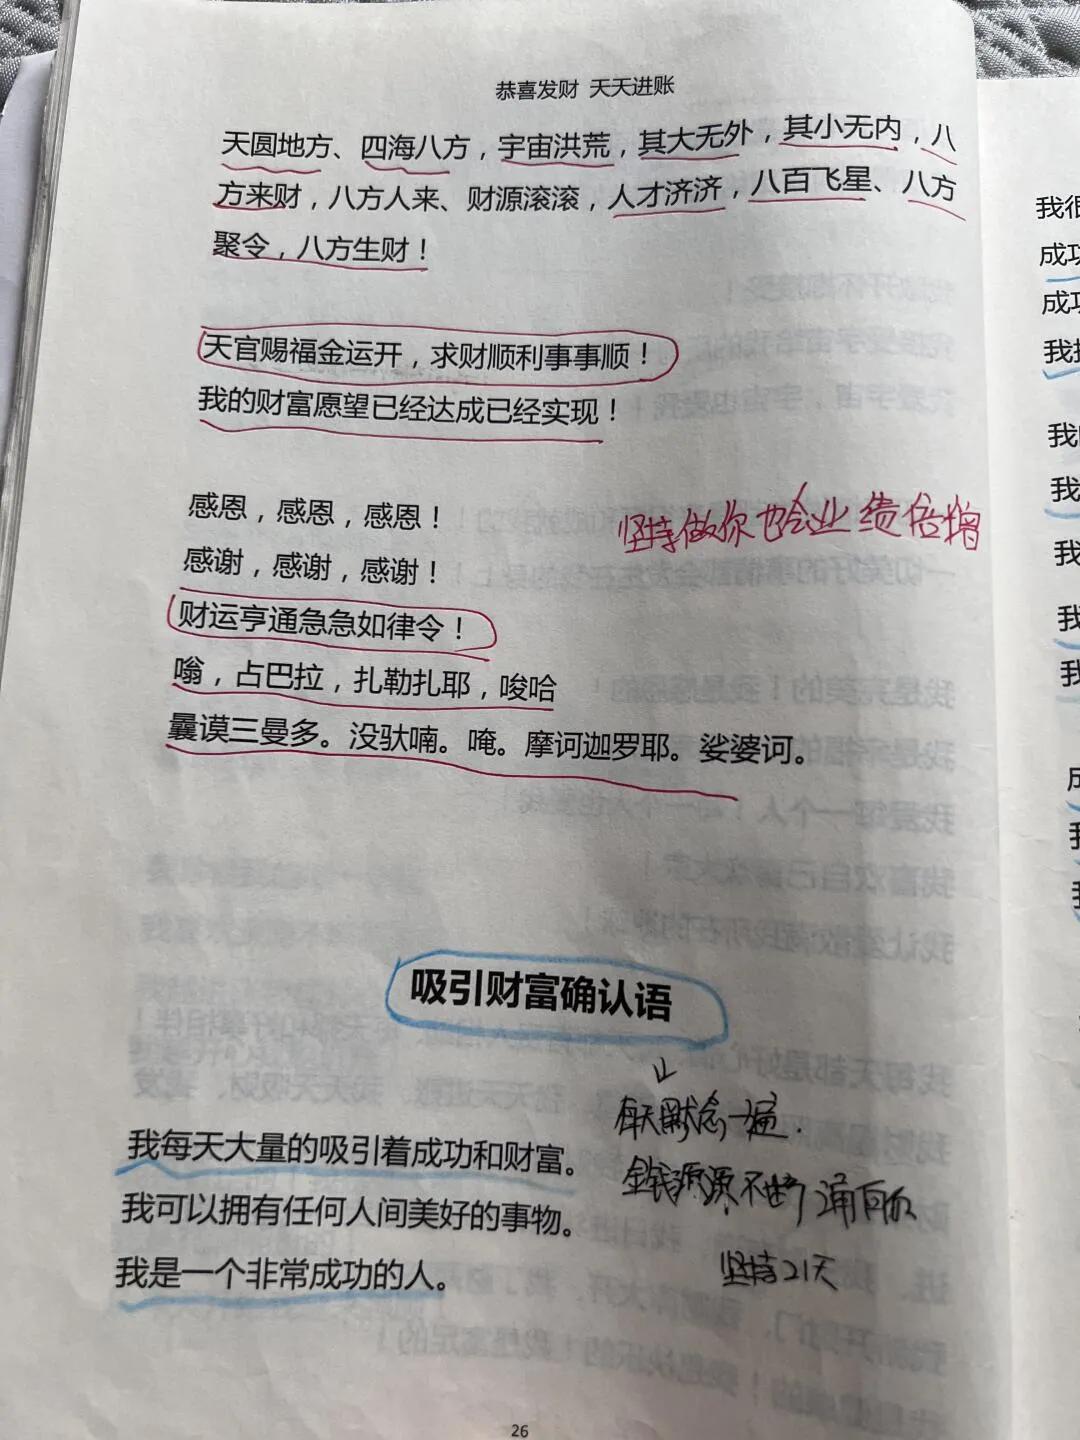 恭喜发财 天天进账
天圆地方、四海八方，宇宙洪荒，其大无外，其小无内，八
方来财，八方人来、财源滚滚，人才济济，八百飞星、八方
聚令，八方生财！
天官赐福金运开，求财顺利事事顺！
我的财富愿望已经达成已经实现！
感恩，感恩，感恩！
坚持做你也会业绩倍增
感谢，感谢，感谢！
财运亨通急急如律令！
嗡，占巴拉，扎勒扎耶，唆哈
曩谟三曼多。没驮喃。唵。摩诃迦罗耶。娑婆诃。
吸引财富确认语
每天默念一遍.
我每天大量的吸引着成功和财富。
金钱源源不断涌向你
我可以拥有任何人间美好的事物。
我是一个非常成功的人。
坚持21天
26
我很
成功
成功
我
我
我
我
我